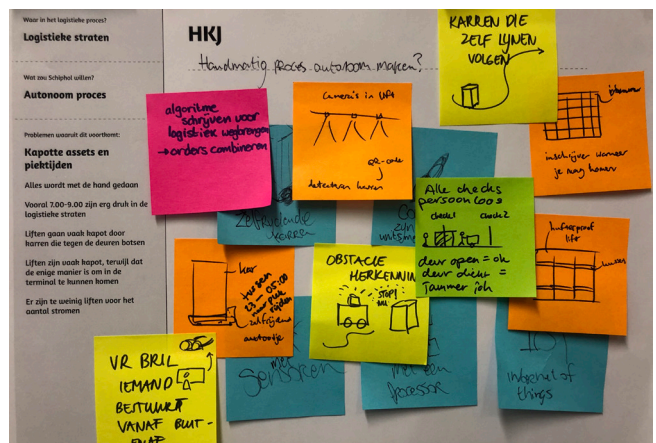 Waar in het logistieke proces?
Logistieke straten
Wat zou Schiphol willen?
Autonoom proces
Problemen waaruit dit voortkomt:
Kapotte assets en
piektijden
Alles wordt met de hand gedaan
Vooral 7.00-9.00 zijn erg druk in de
logistieke straten
Liften gaan vaak kapot door
karren die tegen de deuren botsen
Liften zijn vaak kapot, terwijl dat
de enige manier is om in de
terminal te kunnen komen
Er zijn te weinig liften voor het
aantal stromen
HKJ
Handmatig proces autonoom maken?
KARREN DIE
ZELF LIJNEN
VOLGEN
algoritme
schrijven voor
logistiek wegbrengen
→ orders combineren
Camera's in lift
QR-code
detecteren karren
inschrijven wanneer
je mag komen
zelfrijdende
karren
Alle checks
persoonloos
check1 check2
deur open = ok
deur dicht =
jammer joh
hufterproof
lift
kar
tussen
23-05:00
naar plek
rijden
zelfrijdend
autootje
OBSTACLE
HERKENNIN
STOP!
VR BRIL
IEMAND
BESTUURT
VANAF BUIT-
ENAF
met
sensoren
met een
processor
internet of
things